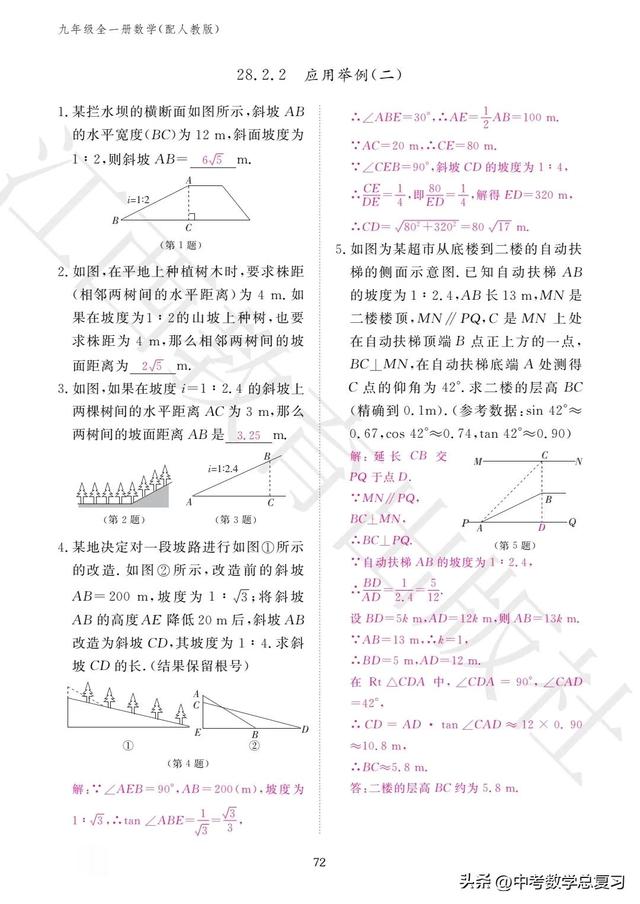 九年级全一册数学(配人教版)
28.2.2 应用举例(二)
1. 某拦水坝的横断面如图所示,斜坡 AB
的水平宽度(BC)为 12 m,斜面坡度为
1∶2,则斜坡 AB= 6√5 m.
A
i=1:2
B
C
(第 1 题)
2. 如图,在平地上种植树木时,要求株距
(相邻两树间的水平距离)为 4 m. 如
果在坡度为1∶2的山坡上种树,也要
求株距为 4 m,那么相邻两树间的坡
面距离为 2√5 m.
3. 如图,如果在坡度 i=1∶2.4 的斜坡上
两棵树间的水平距离 AC 为 3 m,那么
两树间的坡面距离 AB 是 3.25 m.
B
i=1:2.4
A
C
(第 2 题)
(第 3 题)
4. 某地决定对一段坡路进行如图①所示
的改造. 如图②所示,改造前的斜坡
AB=200 m,坡度为 1∶√3;将斜坡
AB 的高度 AE 降低 20 m 后,斜坡 AB
改造为斜坡 CD,其坡度为 1∶4. 求斜
坡 CD 的长.(结果保留根号)
A
C
E
B
D
①
②
(第 4 题)
解:∵∠AEB=90°,AB=200(m),坡度为
1∶√3,∴tan ∠ABE=1/√3=√3/3,
∴∠ABE=30°,∴AE=1/2AB=100 m.
∵AC=20 m,∴CE=80 m.
∵∠CEB=90°,斜坡 CD 的坡度为 1∶4,
∴CE/DE=1/4,即80/ED=1/4,解得 ED=320 m,
∴CD=√(80²+320²)=80√17 m.
5. 如图为某超市从底楼到二楼的自动扶
梯的侧面示意图. 已知自动扶梯 AB
的坡度为 1∶2.4,AB 长 13 m,MN 是
二楼楼顶,MN∥PQ,C 是 MN 上处
在自动扶梯顶端 B 点正上方的一点,
BC⊥MN,在自动扶梯底端 A 处测得
C 点的仰角为 42°. 求二楼的层高 BC
(精确到 0.1m).(参考数据:sin 42°≈
0.67,cos 42°≈0.74,tan 42°≈0.90)
解:延长 CB 交
PQ 于点 D.
∵MN∥PQ,
BC⊥MN,
∴BC⊥PQ.
M
C
N
B
P
A
D
Q
(第 5 题)
∵自动扶梯 AB 的坡度为 1∶2.4,
∴BD/AD=1/2.4=5/12.
设 BD=5k m,AD=12k m,则 AB=13k m.
∵AB=13 m,∴k=1,
∴BD=5 m,AD=12 m.
在 Rt △CDA 中,∠CDA = 90°,∠CAD
=42°,
∴CD = AD·tan ∠CAD ≈ 12 × 0.90
≈10.8 m,
∴BC≈5.8 m.
答:二楼的层高 BC 约为 5.8 m.
72
江西教育出版社
头条 @中考数学总复习